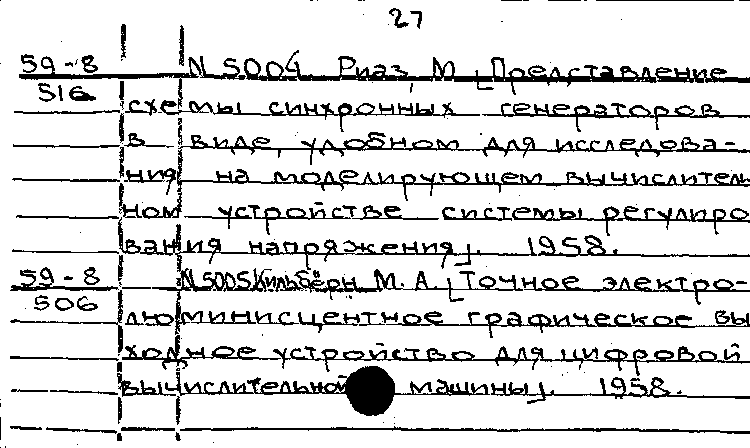 27
59-8 N 5004 Риаз, М. [Представление
516 схемы синхронных генераторов
в виде, удобном для исследова-
ния на моделирующем вычислитель
ном устройстве системы регулиро
вания напряжения]. 1958.
59-8 N 5005 Кильбёрн М. А. [Точное электро-
506 люминисцентное графическое вы
ходное устройство для цифровой
вычислительной машины]. 1958.